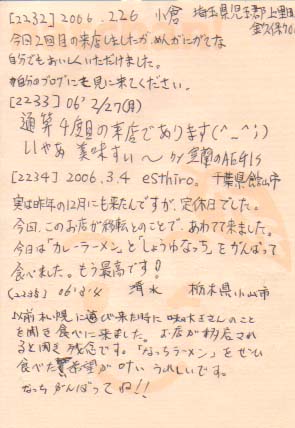 [2232] 2006.2.26 小倉 埼玉県児玉郡上里町
今回2回目の来店しましたが、めんがにがてな
自分でもおいしくいただけました。
自分のブログにも見に来てください。
[2233] 06' 2/27(月)
通算4度目の来店であります(^_^;)
いやあ 美味すぃ〜 by 室蘭の
[2234] 2006.3.4 esthiro. 千葉県館山市
実は昨年の12月にも来たんですが、定休日でした。
今回、このお店が移転とのことで、あわてて来ました。
今日は「カレーラーメン」と「しょうゆなっち」をがんばって
食べました。もう最高です!
[2235] 06・3・4 清水 栃木県小山市
以前札幌に遊び来た時に味の大王さんのこと
を聞き食べに来ました。お店が移店され
ると聞き残念です。「なっちラーメン」をぜひ
食べた希望が叶いうれしいです。
なっちがんばってね!!